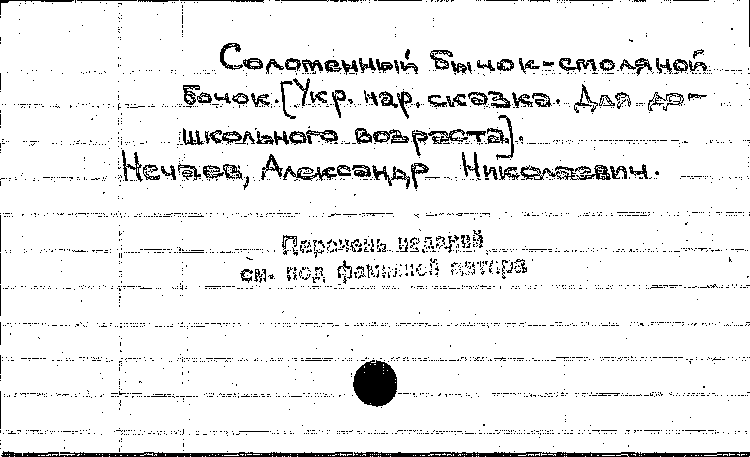 Соломенный бычок-смоляной
бочок. [Укр. нар. сказка. Для до-
школьного возраста].
Нечаев, Александр Николаевич.
Перечень изданий
см. под фамилией автора